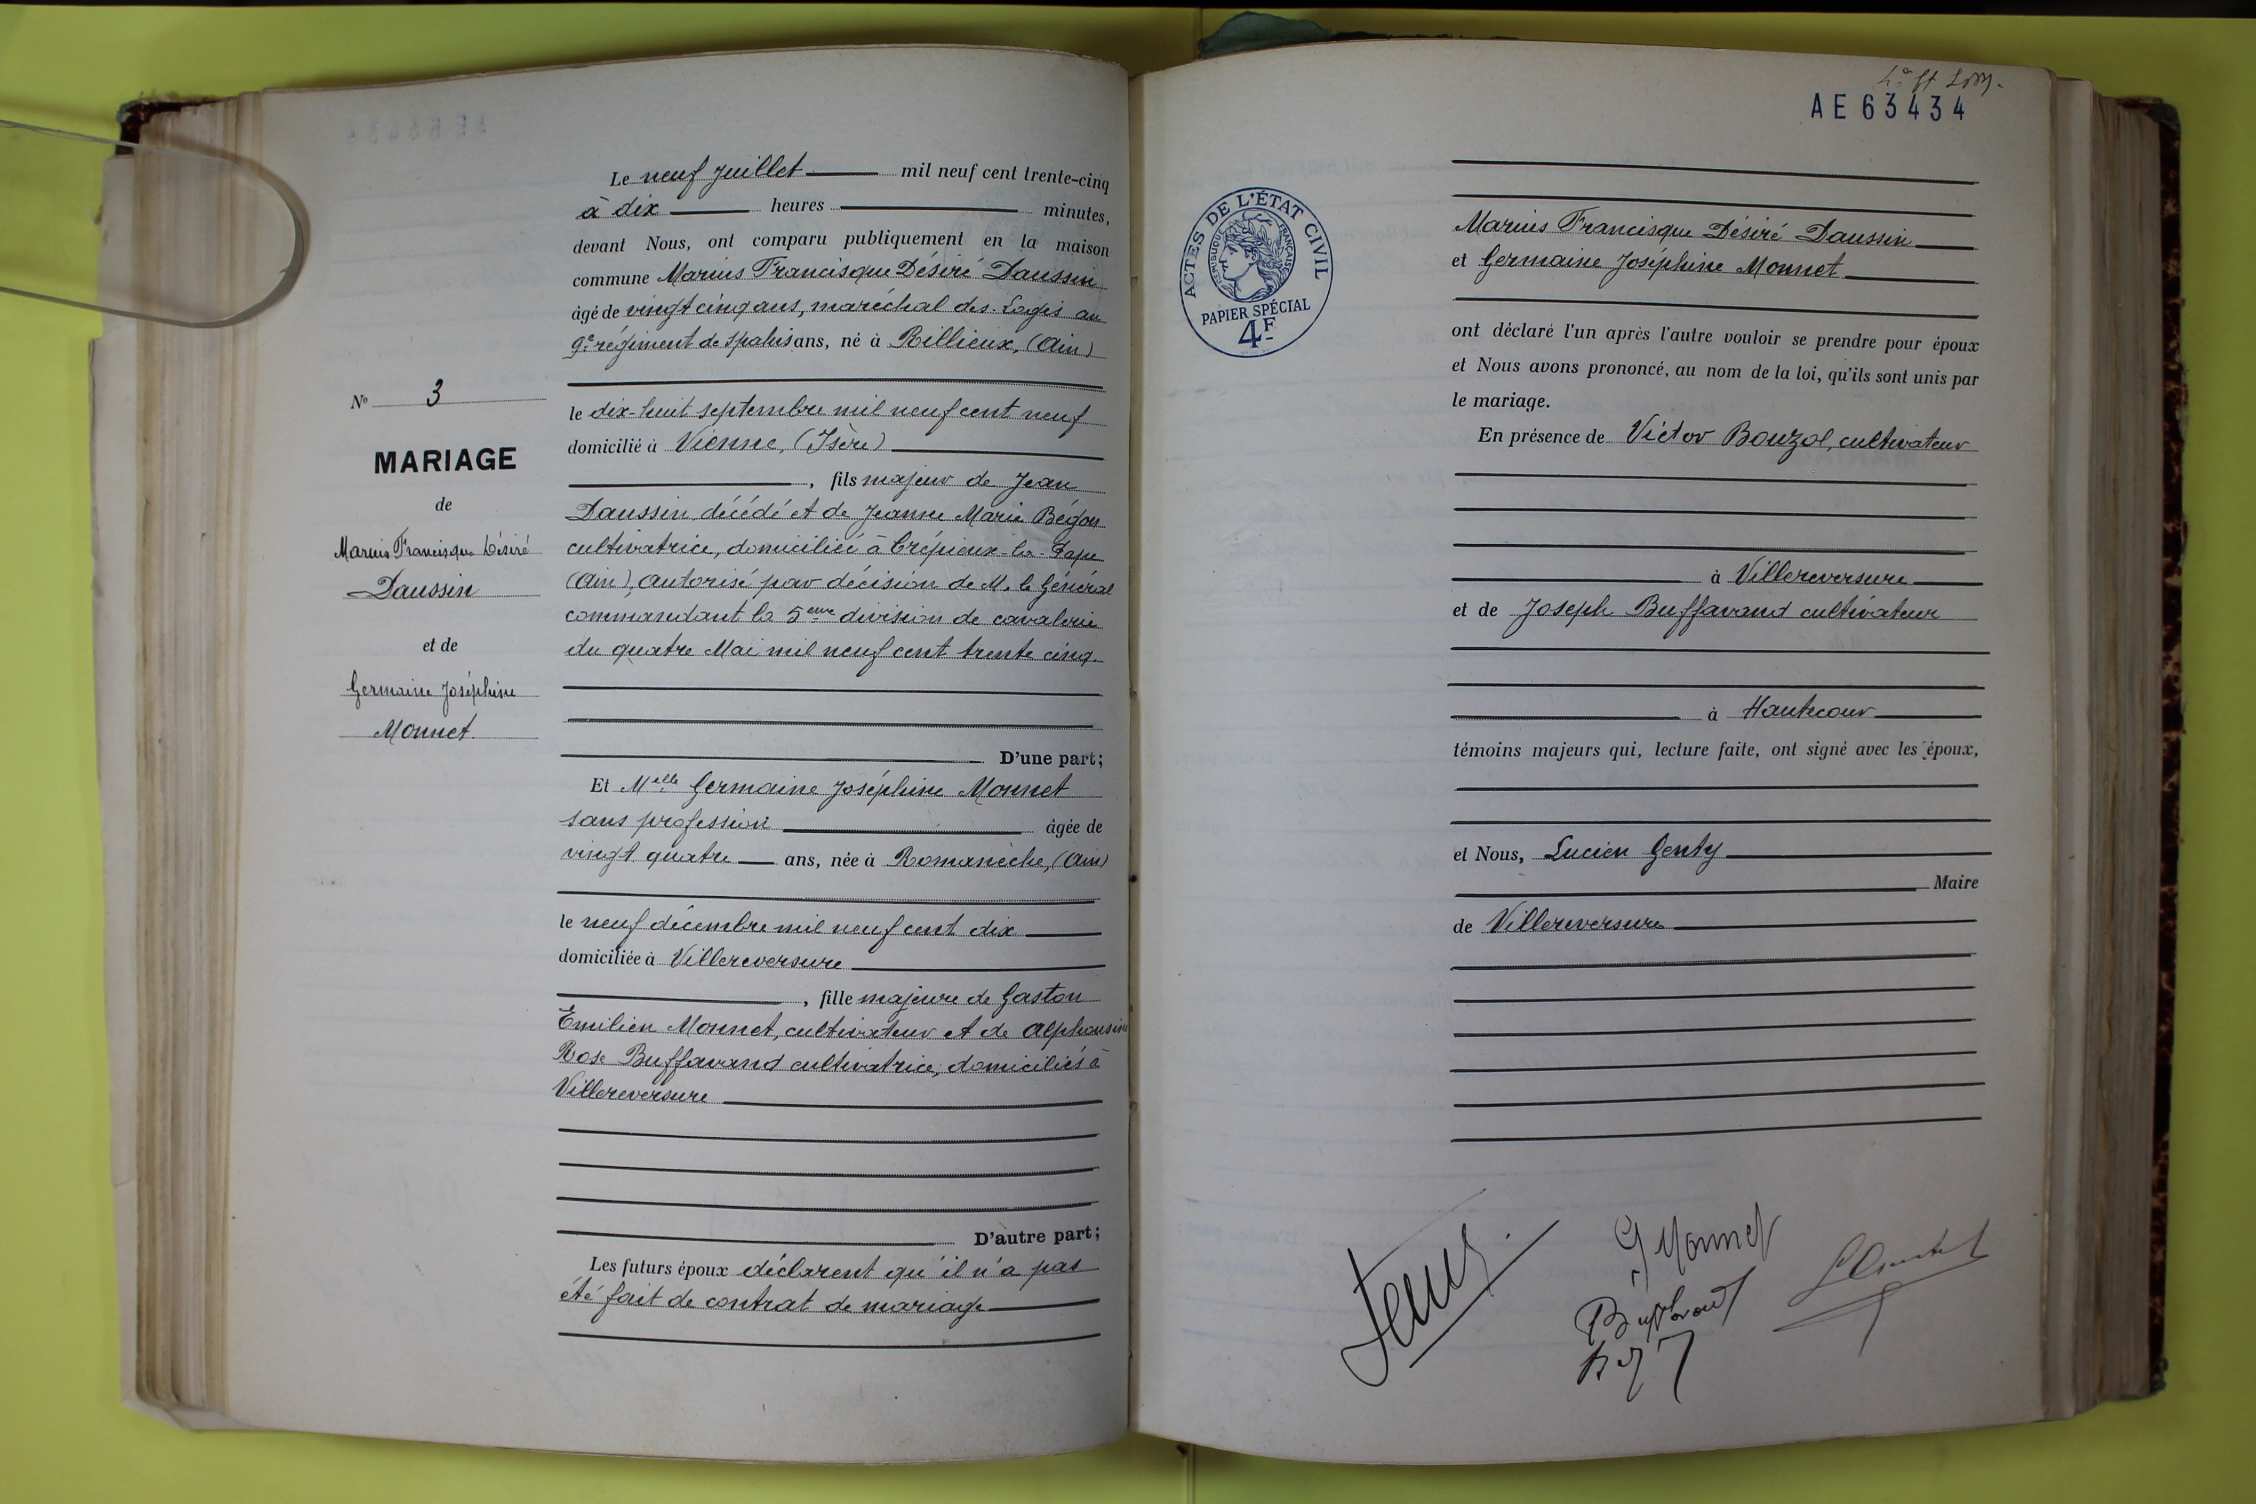 Le neuf Juillet mil neuf cent trente-cinq
à dix heures minutes,
devant Nous, ont comparu publiquement en la maison
commune Marius Francisque Désiré Daussin
âgé de vingt cinq ans, maréchal des-Logis au
9e régiment de spahis ans, né à Rillieux, (Ain)
le dix-huit septembre mil neuf cent neuf
domicilié à Vienne, (Isère)
, fils majeur de Jean
Daussin, décédé et de Jeanne Marie Bégon
cultivatrice, domiciliée à Crépieux-la-Pape
(Ain), autorisé par décision de M. le Général
commandant la 5eme division de cavalerie
du quatre Mai mil neuf cent trente cinq.
D'une part;
Et Melle Germaine Joséphine Monnet
sans profession âgée de
vingt quatre ans, née à Romanèche, (Ain)
le neuf décembre mil neuf cent dix
domiciliée à Villereversure
, fille majeure de Gaston
Emilien Monnet, cultivateur et de Alphonsine
Rose Buffavand cultivatrice, domiciliés à
Villereversure
D'autre part;
Les futurs époux déclarent qu'il n'a pas
été fait de contrat de mariage
No 3
MARIAGE
de
Marius Francisque Désiré
Daussin
et de
Germaine Joséphine
Monnet
AE63434
ACTES DE L'ÉTAT CIVIL
RÉPUBLIQUE FRANÇAISE
PAPIER SPÉCIAL
4F
Marius Francisque Désiré Daussin
et Germaine Joséphine Monnet
ont déclaré l'un après l'autre vouloir se prendre pour époux
et Nous avons prononcé, au nom de la loi, qu'ils sont unis par
le mariage.
En présence de Victor Bouzol, cultivateur
à Villereversure
et de Joseph Buffavand cultivateur
à Hautecour
témoins majeurs qui, lecture faite, ont signé avec les époux,
et Nous, Lucien Genty
Maire
de Villereversure
G Monnet
Buffavand